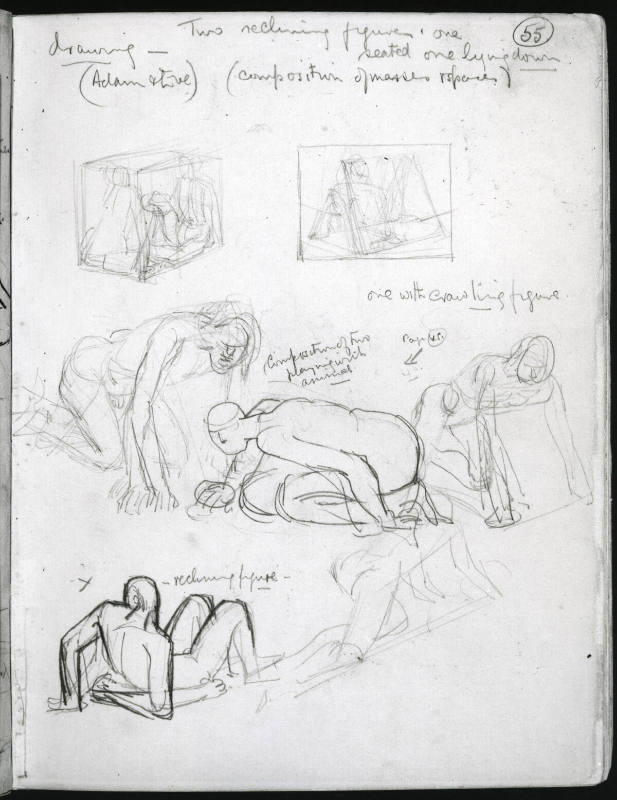 Two reclining figures, one
55
drawing — seated one lying down
(Adam & Eve) (composition of masses & spaces)
one with crawling figure
Composition of two
playing with
animal
Page 45
x - reclining figure -